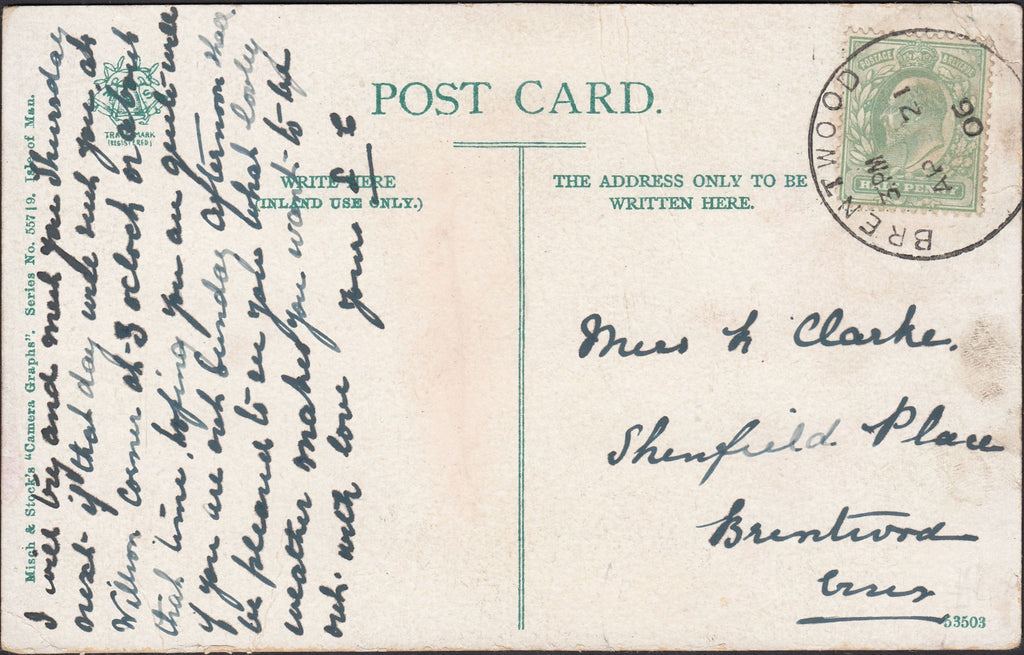 Misch & Stock's "Camera Graphs". Series No. 557|9. Isle of Man.
TRADE MARK
(REGISTERED)
POST CARD.
WRITE HERE
(INLAND USE ONLY.)
THE ADDRESS ONLY TO BE
WRITTEN HERE.
POSTAGE & REVENUE
HALF PENNY
BRENTWOOD
3 PM
AP 21
06
I will try and meet you Thursday
next if that day will suit you, at
Wilson corner at 3 oclock or about
that time, hoping you are quite well
if you are out Sunday afternoon shall
be pleased to see you what lovely
weather makes you want to be
out. with love
Yours
Miss Clarke.
Shenfield Place
Brentwood
Essex
53503